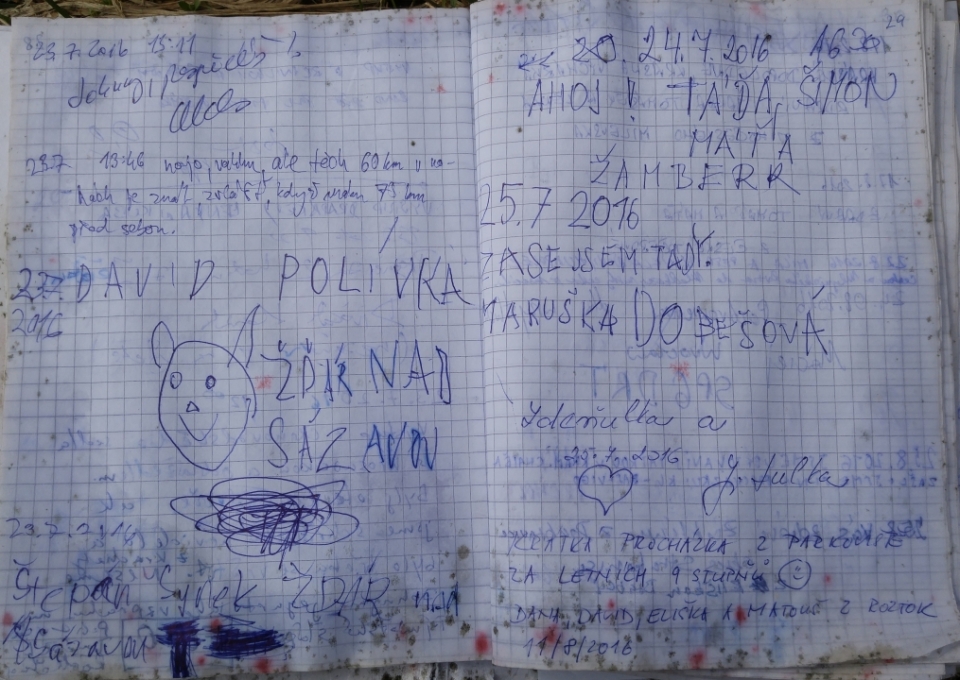 23.7.2016 15:11
23.7 13:46 nojo, vole, ale těch 60 km v no-
hách je znát, zvlášť, když mám 75 km
před sebou.
23.7 DAVID POLIVKA
2016
ŽĎÁR NAD
SÁZAVOU
23.7.2016
Štěpán Synek ŽDÁR nad
Sázavou
29
24.7.2016 16:30
AHOJ! TÁĎA, ŠIMON
MÁŤA
ŽAMBERK
25.7 2016
ZASE JSEM TADY.
MARUŠKA DOBEŠOVÁ
Zdeňulka a
28.7.2016
J. Julka
KRÁTKÁ PROCHÁZKA Z PARKOVIŠTĚ
ZA LETNÍCH 9 STUPŇŮ
DANA, DAVID, ELIŠKA A MATOUŠ Z ROZTOK
11/8/2016